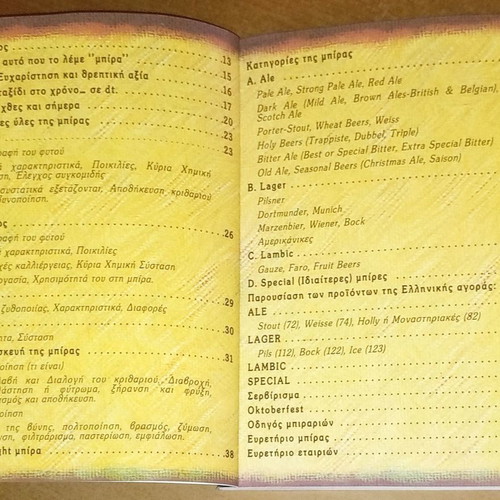 ος
αυτό που το λέμε "μπίρα" 13
Ευχαρίστηση και θρεπτική αξία 15
ταξίδι στο χρόνο... σε dt. 16
χθες και σήμερα 17
ες ύλες της μπίρας 20
23
ραφή του φυτού 23
ά χαρακτηριστικά, Ποικιλίες, Κύρια Χημική
ση, Έλεγχος συγκομιδής
συστατικά εξετάζονται, Αποθήκευση κριθαριού
θυνοποίηση.
ος 26
ραφή του φυτού
ά χαρακτηριστικά, Ποικιλίες
χές καλλιέργειας, Κύρια Χημική Σύσταση
ργασία, Χρησιμότητά του στη μπίρα.
29
ζυθοποιίας, Χαρακτηριστικά, Διαφορές
30
ητα, Σύσταση
σκευή της μπίρας 31
ποίηση (τι είναι)
λαβή και Διαλογή του κριθαριού, Διαβροχή,
λάστηση ή φύτρωμα, ξήρανση και φρύξη,
ισμός και αποθήκευση.
ποίηση
της βύνης, πολτοποίηση, βρασμός, ζύμωση,
νση, φιλτράρισμα, παστερίωση, εμφιάλωση.
ght μπίρα 38
Κατηγορίες της μπίρας
Α. Ale
Pale Ale, Strong Pale Ale, Red Ale
Dark Ale (Mild Ale, Brown Ales-British & Belgian),
Scotch Ale
Porter-Stout, Wheat Beers, Weiss
Holy Beers (Trappiste, Dubbel, Triple)
Bitter Ale (Best or Special Bitter, Extra Special Bitter)
Old Ale, Seasonal Beers (Christmas Ale, Saison)
Β. Lager
Pilsner
Dortmunder, Munich
Marzenbier, Wiener, Bock
Αμερικάνικες
C. Lambic
Gauze, Faro, Fruit Beers
D. Special (Ιδιαίτερες) μπίρες
Παρουσίαση των προϊόντων της Ελληνικής αγοράς:
ALE
Stout (72), Weisse (74), Holly ή Μοναστηριακές (82)
LAGER
Pils (112), Bock (122), Ice (123)
LAMBIC
SPECIAL
Σερβίρισμα
Oktoberfest
Οδηγός μπιραριών
Ευρετήριο μπίρας
Ευρετήριο εταιριών